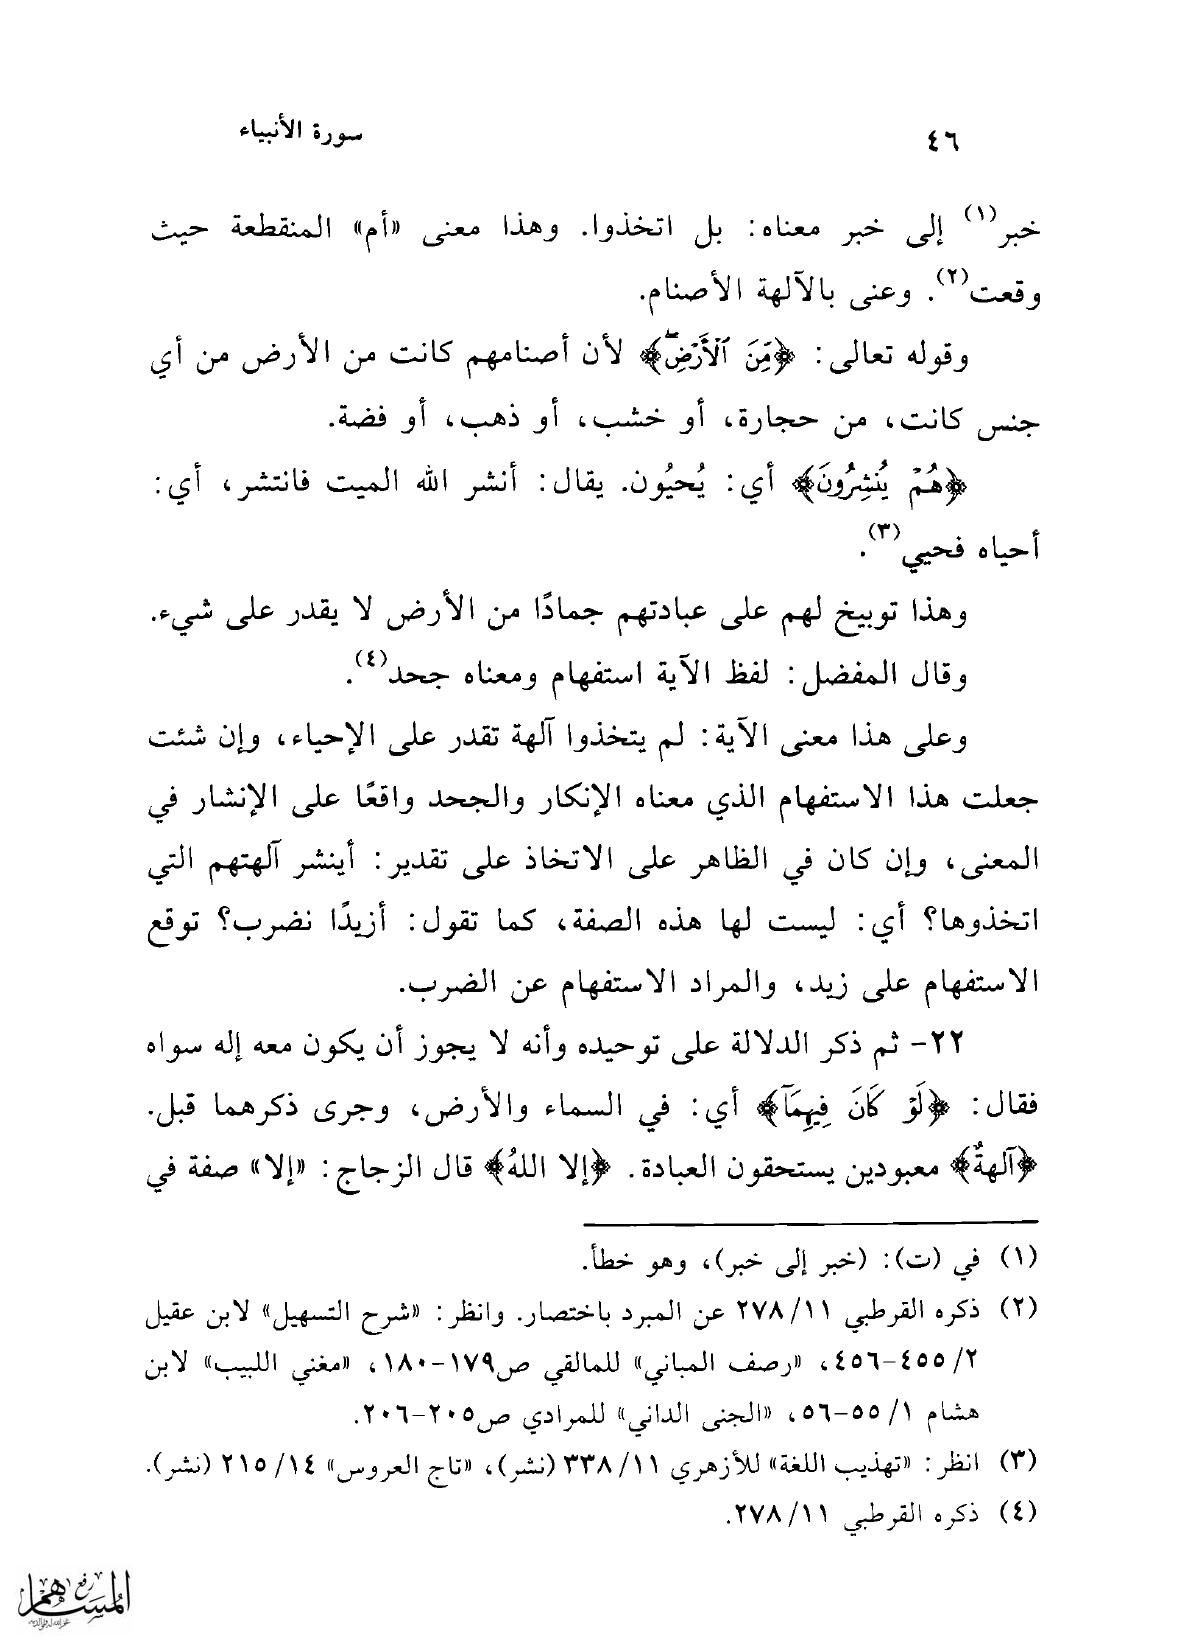 ٤٦
سورة الأنبياء
خبر(١) إلى خبر معناه: بل اتخذوا. وهذا معنى «أم» المنقطعة حيث
وقعت(٢). وعنى بالآلهة الأصنام.
وقوله تعالى: ﴿مِّنَ ٱلْأَرْضِ﴾ لأن أصنامهم كانت من الأرض من أي
جنس كانت، من حجارة، أو خشب، أو ذهب، أو فضة.
﴿هُمْ يُنشِرُونَ﴾ أي: يُحيُون. يقال: أنشر الله الميت فانتشر، أي:
أحياه فحيي(٣).
وهذا توبيخ لهم على عبادتهم جمادًا من الأرض لا يقدر على شيء.
وقال المفضل: لفظ الآية استفهام ومعناه جحد(٤).
وعلى هذا معنى الآية: لم يتخذوا آلهة تقدر على الإحياء، وإن شئت
جعلت هذا الاستفهام الذي معناه الإنكار والجحد واقعًا على الإنشار في
المعنى، وإن كان في الظاهر على الاتخاذ على تقدير: أينشر آلهتهم التي
اتخذوها؟ أي: ليست لها هذه الصفة، كما تقول: أزيدًا نضرب؟ توقع
الاستفهام على زيد، والمراد الاستفهام عن الضرب.
٢٢- ثم ذكر الدلالة على توحيده وأنه لا يجوز أن يكون معه إله سواه
فقال: ﴿لَوْ كَانَ فِيهِمَآ﴾ أي: في السماء والأرض، وجرى ذكرهما قبل.
﴿آلهةٌ﴾ معبودين يستحقون العبادة. ﴿إلا اللهُ﴾ قال الزجاج: «إلا» صفة في
(١) في (ت): (خبر إلى خبر)، وهو خطأ.
(٢) ذكره القرطبي ١١/ ٢٧٨ عن المبرد باختصار. وانظر: «شرح التسهيل» لابن عقيل
٢/ ٤٥٥-٤٥٦، «رصف المباني» للمالقي ص١٧٩-١٨٠، «مغني اللبيب» لابن
هشام ١/ ٥٥-٥٦، «الجنى الداني» للمرادي ص٢٠٥-٢٠٦.
(٣) انظر: «تهذيب اللغة» للأزهري ١١/ ٣٣٨ (نشر)، «تاج العروس» ١٤/ ٢١٥ (نشر).
(٤) ذكره القرطبي ١١/ ٢٧٨.